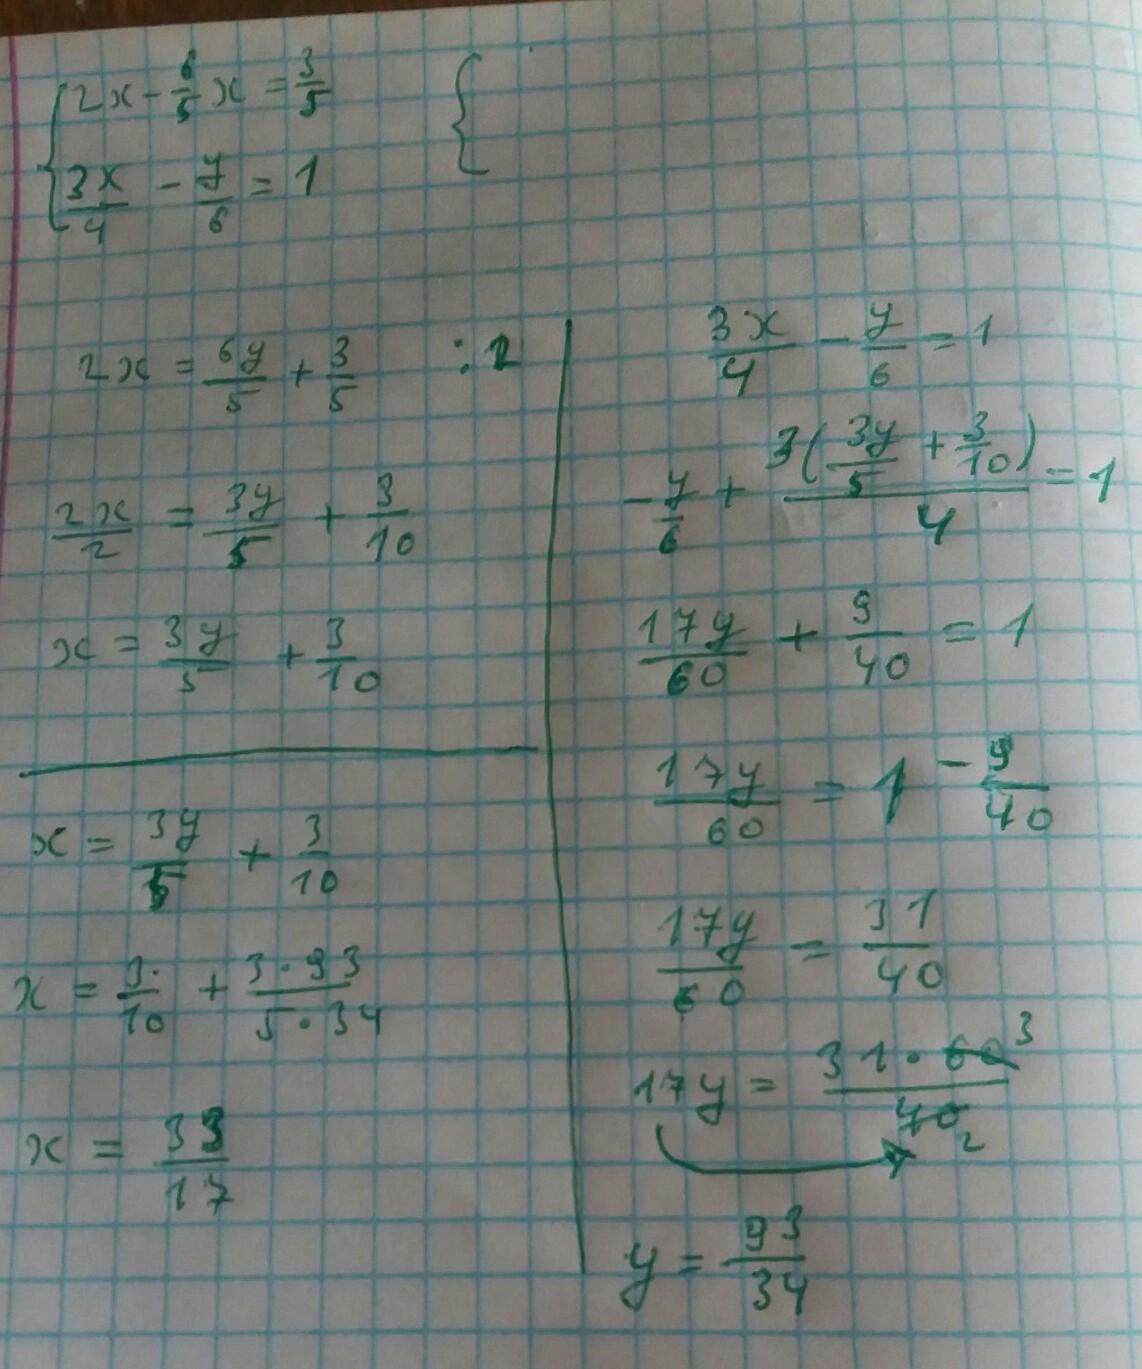 2x - 6/5 x = 3/5
3x/4 - y/6 = 1
2x = 6y/5 + 3/5 :2
2x/2 = 3y/5 + 3/10
x = 3y/5 + 3/10
x = 3y/5 + 3/10
x = 3/10 + 3·93/5·34
x = 33/17
3x/4 - y/6 = 1
-y/6 + 3(3y/5 + 3/10)/4 = 1
17y/60 + 9/40 = 1
17y/60 = 1 - 9/40
17y/60 = 31/40
17y = 31·60 3/40 2
y = 93/34